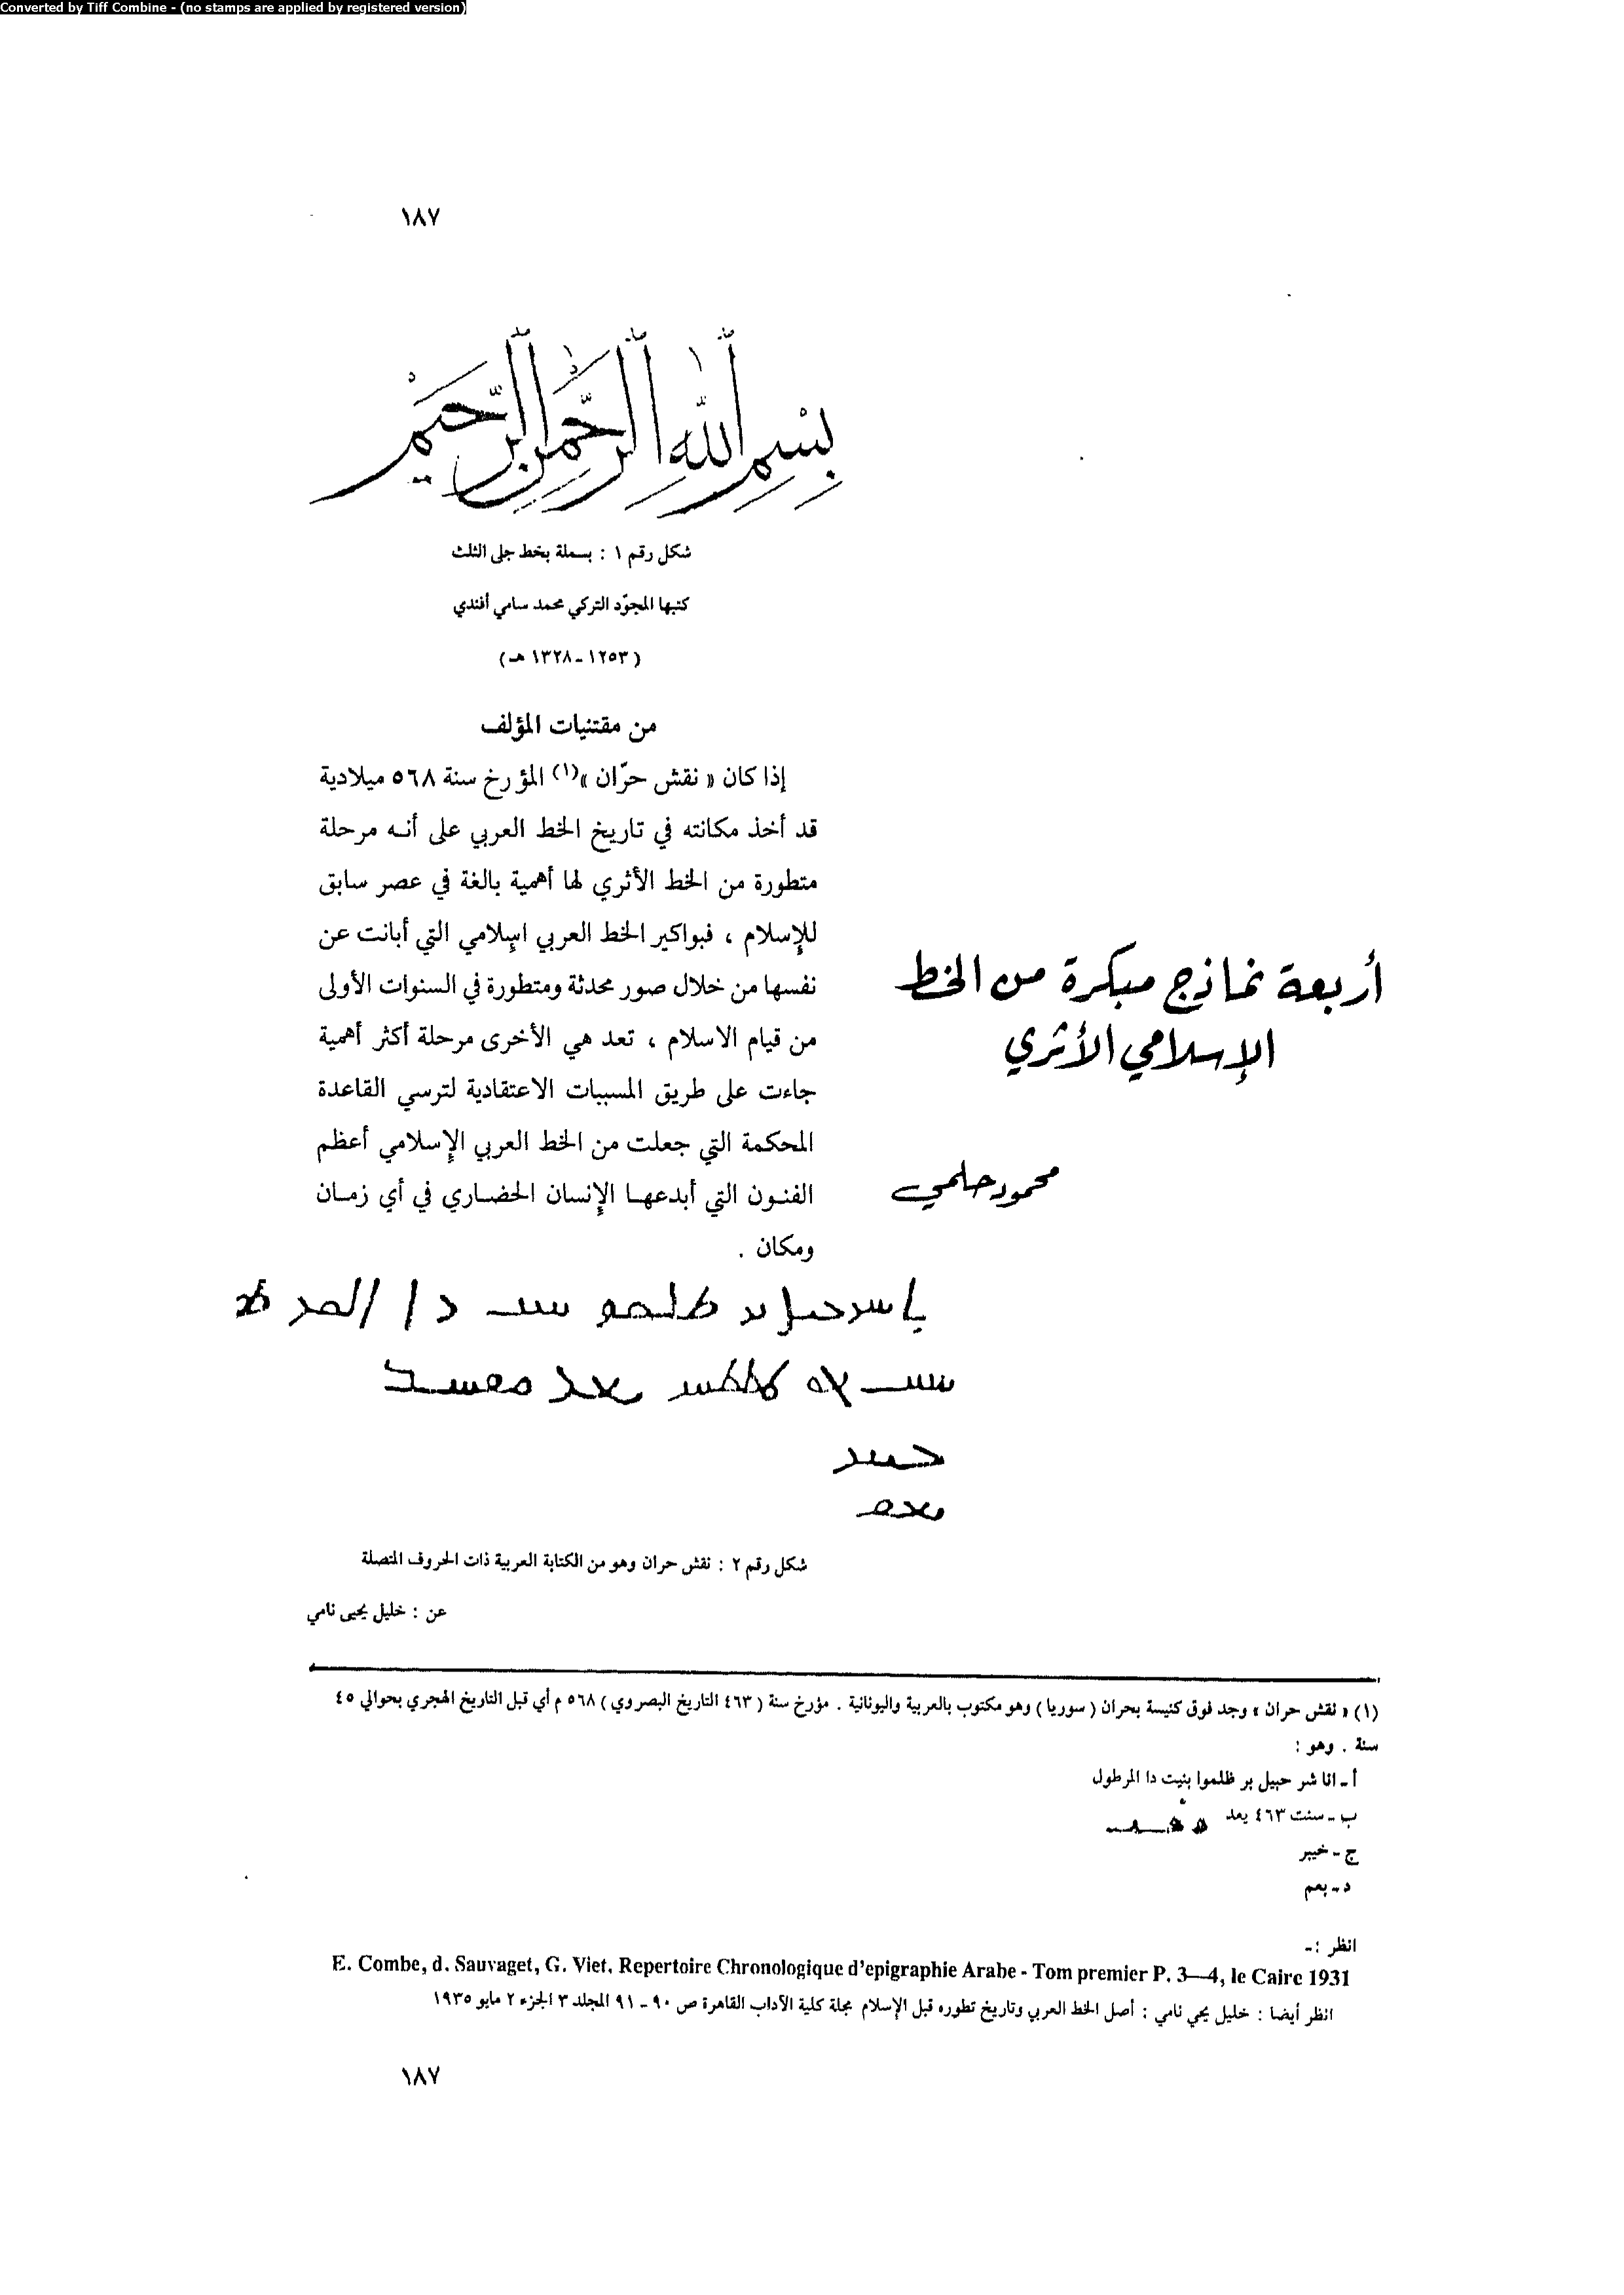 Converted by Tiff Combine - (no stamps are applied by registered version)
١٨٧
بِسْمِ اللهِ الرَّحْمٰنِ الرَّحِيْمِ
شكل رقم ١ : بسملة بخط جلى الثلث
كتبها المجوّد التركي محمد سامي أفندي
( ١٢٥٣ - ١٣٢٨ هـ )
من مقتنيات المؤلف
إذا كان « نقش حرّان »(١) المؤرخ سنة ٥٦٨ ميلادية
قد أخذ مكانته في تاريخ الخط العربي على أنه مرحلة
متطورة من الخط الأثري لها أهمية بالغة في عصر سابق
للإسلام ، فبواكير الخط العربي اسلامي التي أبانت عن
نفسها من خلال صور محدثة ومتطورة في السنوات الأولى
من قيام الاسلام ، تعد هي الأخرى مرحلة أكثر أهمية
جاءت على طريق المسببات الاعتقادية لترسي القاعدة
المحكمة التي جعلت من الخط العربي الإسلامي أعظم
الفنون التي أبدعها الإنسان الحضاري في أي زمان
ومكان .
أربعة نماذج مبكرة من الخط
الإسلامي الأثري
محمود حلمي
شكل رقم ٢ : نقش حران وهو من الكتابة العربية ذات الحروف المتصلة
عن : خليل يحيى نامي
(١) « نقش حران » وجد فوق كنيسة بحران ( سوريا ) وهو مكتوب بالعربية واليونانية . مؤرخ سنة ( ٤٦٣ التاريخ البصروي ) ٥٦٨ م أي قبل التاريخ الهجري بحوالي ٤٥
سنة . وهو :
أ - انا شر حبيل بر ظلموا بنيت دا المرطول
ب - سنت ٤٦٣ يعد
ج - خيبر
د - بعم
انظر :-
E. Combe, d. Sauvaget, G. Viet. Repertoire Chronologique d'epigraphie Arabe - Tom premier P. 3—4, le Caire 1931
انظر أيضا : خليل يحي نامي : أصل الخط العربي وتاريخ تطوره قبل الإسلام مجلة كلية الآداب القاهرة ص ٩٠ - ٩١ المجلد ٣ الجزء ٢ مايو ١٩٣٥
١٨٧